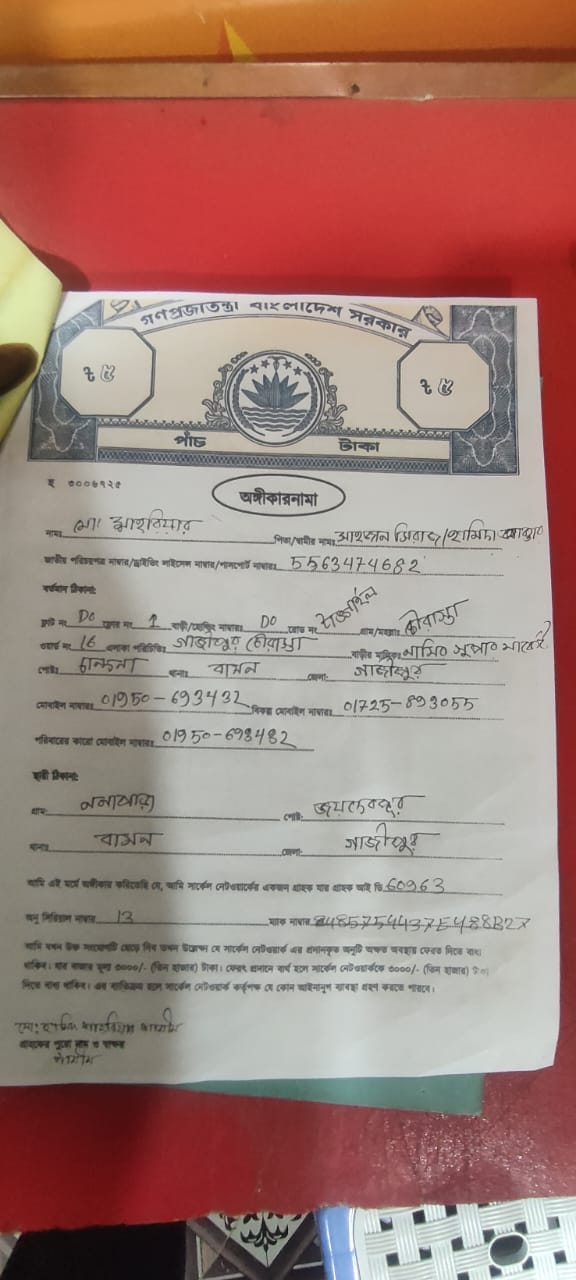 গণপ্রজাতন্ত্রী বাংলাদেশ সরকার
৳ ৫
৳ ৫
পাঁচ টাকা
হ ৩০০৬৭২৫
অঙ্গীকারনামা
নামঃ মোঃ শাহরিয়ার পিতা/স্বামীর নামঃ
জাতীয় পরিচয়পত্র নাম্বার/ড্রাইভিং লাইসেন্স নাম্বার/পাসপোর্ট নাম্বারঃ 5563474682
বর্তমান ঠিকানা:
ফ্লাট নং DO ফ্লোর নং 1 বাড়ী/হোল্ডিং নাম্বারঃ DO রোড নং গ্রাম/মহল্লাঃ চৌরাস্তা
ওয়ার্ড নং 16 এলাকা পরিচিতিঃ গাজীপুর চৌরাস্তা বাড়ীর মালিকঃ নাসির সুপার মার্কেট
পোষ্টঃ চান্দনা থানাঃ বাসন জেলাঃ গাজীপুর
মোবাইল নাম্বারঃ 01950-693432 বিকল্প মোবাইল নাম্বারঃ 01725-893055
পরিবারের কারো মোবাইল নাম্বারঃ 01950-698482
স্থায়ী ঠিকানা:
গ্রাম: নলাপাড়া পোষ্ট: জয়দেবপুর
থানাঃ বাসন জেলাঃ গাজীপুর
আমি এই মর্মে অঙ্গীকার করিতেছি যে, আমি সার্কেল নেটওয়ার্কের একজন গ্রাহক যার গ্রাহক আই ডি 60963
অনু সিরিয়াল নাম্বার 13 ম্যাক নাম্বার
আমি যখন উক্ত সংযোগটি ছেড়ে দিব তখন উল্লেখ্য যে সার্কেল নেটওয়ার্ক এর প্রদানকৃত অনুটি অক্ষত অবস্থায় ফেরত দিতে বাধ্য
থাকিব। যার বাজার মূল্য ৩০০০/- (তিন হাজার) টাকা। ফেরৎ প্রদানে ব্যর্থ হলে সার্কেল নেটওয়ার্ককে ৩০০০/- (তিন হাজার) টাকা
দিতে বাধ্য থাকিব। এর ব্যতিক্রম হলে সার্কেল নেটওয়ার্ক কর্তৃপক্ষ যে কোন আইনানুগ ব্যবস্থা গ্রহণ করতে পারবে।
গ্রাহকের পুরো নাম ও স্বাক্ষর